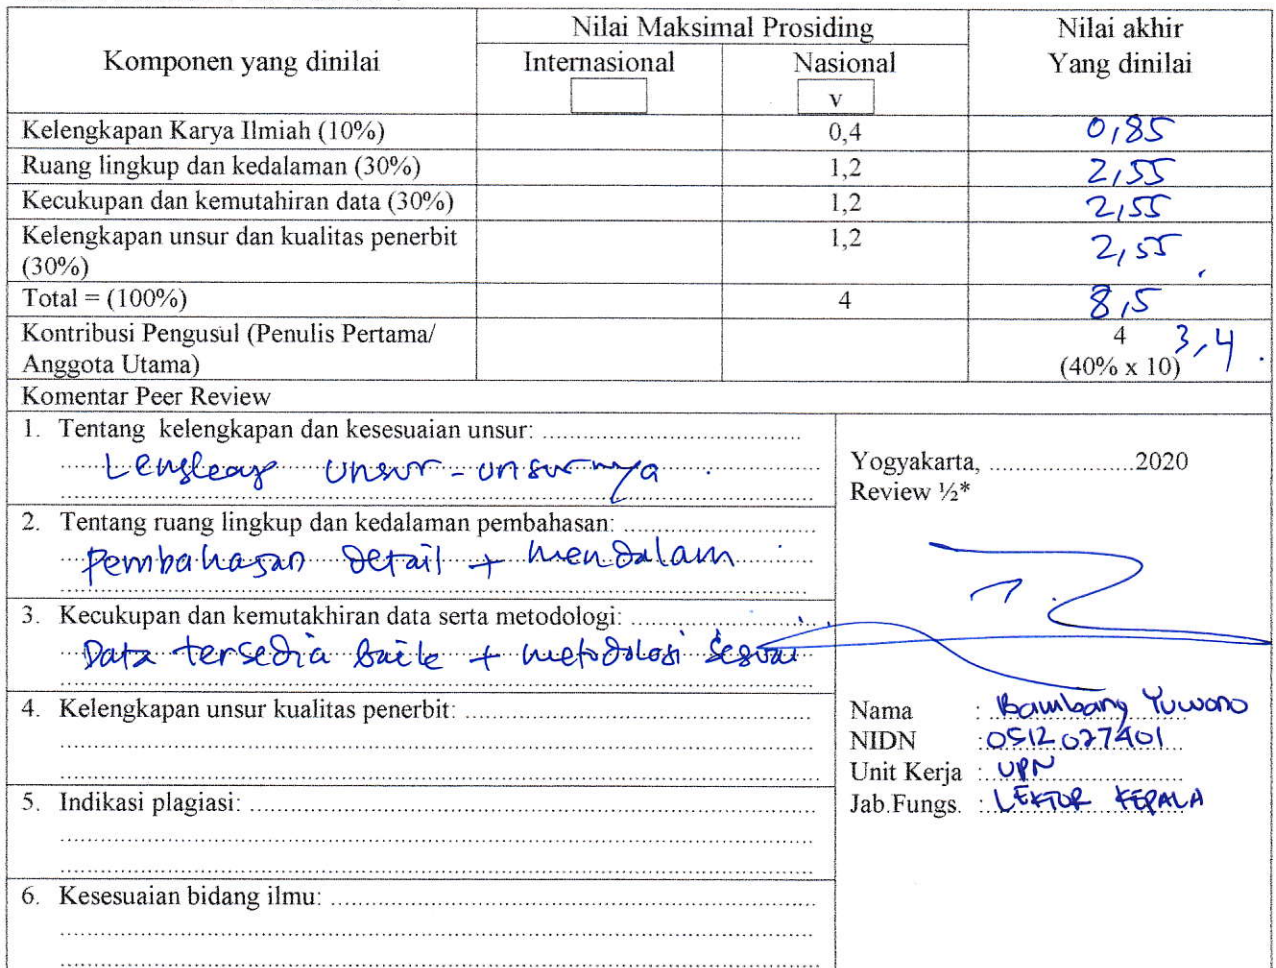 Komponen yang dinilai
Nilai Maksimal Prosiding
Nilai akhir
Yang dinilai
Internasional
Nasional
v
Kelengkapan Karya Ilmiah (10%) 0,4 0,85
Ruang lingkup dan kedalaman (30%) 1,2 2,55
Kecukupan dan kemutahiran data (30%) 1,2 2,55
Kelengkapan unsur dan kualitas penerbit 1,2 2,55
(30%)
Total = (100%) 4 8,5
Kontribusi Pengusul (Penulis Pertama/ 4 3,4
Anggota Utama) (40% x 10)
Komentar Peer Review
1. Tentang kelengkapan dan kesesuaian unsur: ..................
Lengkap unsur-unsurnya.
2. Tentang ruang lingkup dan kedalaman pembahasan: ..................
Pembahasan detail + mendalam
3. Kecukupan dan kemutakhiran data serta metodologi: ..................
Data tersedia baik + metodologi sesuai
4. Kelengkapan unsur kualitas penerbit: ..................
5. Indikasi plagiasi: ..................
6. Kesesuaian bidang ilmu: ..................
Yogyakarta, ..................2020
Review ½*
Nama : Bambang Yuwono
NIDN : 0512027401
Unit Kerja : UPN
Jab.Fungs. : LEKTOR KEPALA